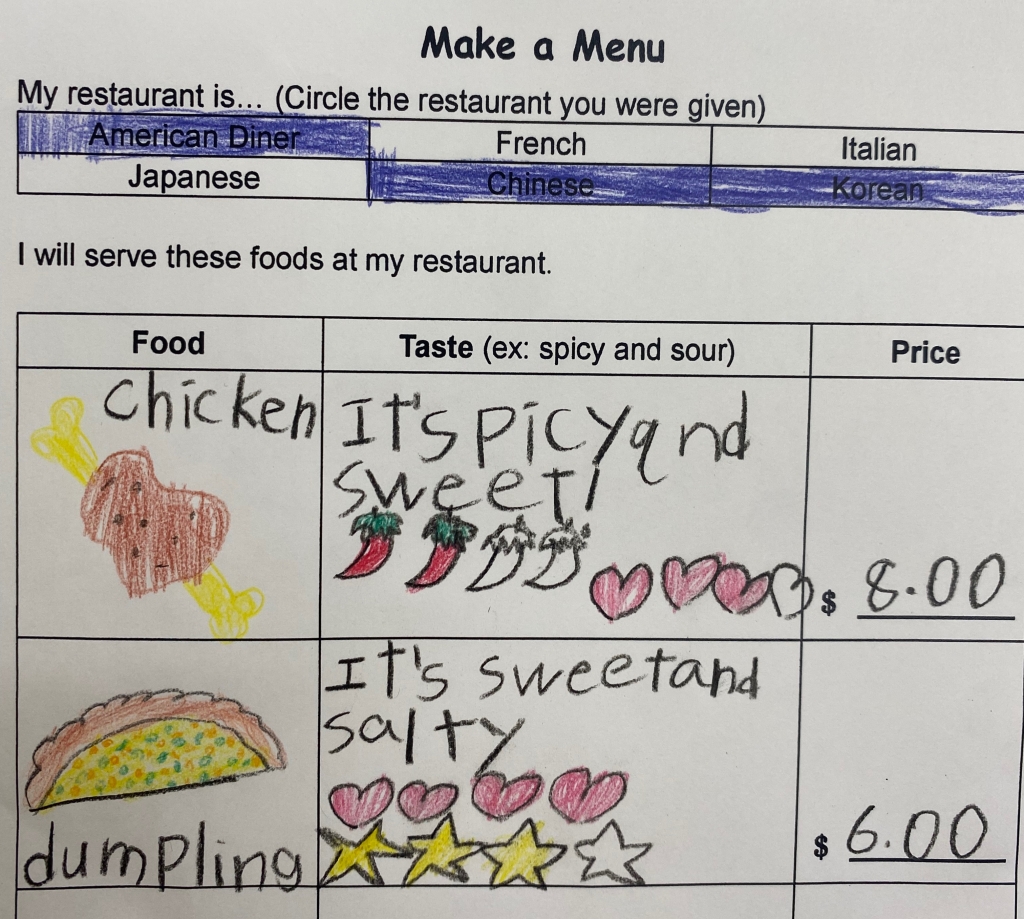 Make a Menu
My restaurant is... (Circle the restaurant you were given)
American Diner French Italian
Japanese Chinese Korean
I will serve these foods at my restaurant.
Food Taste (ex: spicy and sour) Price
chicken It's picy and
sweet!
$ 8.00
It's sweet and
salty
dumpling $ 6.00